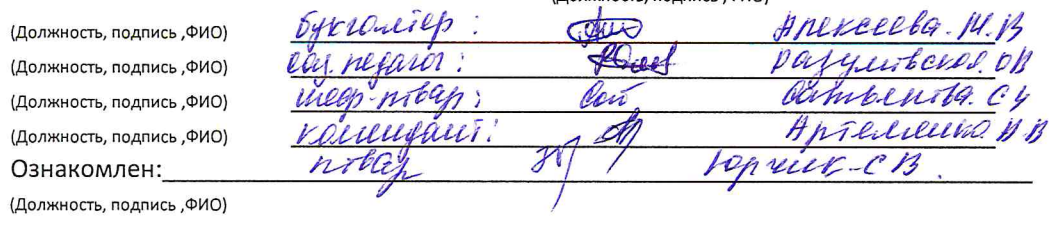 (Должность, подпись ,ФИО)
(Должность, подпись ,ФИО) бухгалтер: Алексеева. М. В
(Должность, подпись ,ФИО) соц. педагог: Разумовская. ОВ
(Должность, подпись ,ФИО) шеф-повар:
(Должность, подпись ,ФИО) комендант: Артеменко Н В
Ознакомлен: повар Юрчик-С В.
(Должность, подпись ,ФИО)